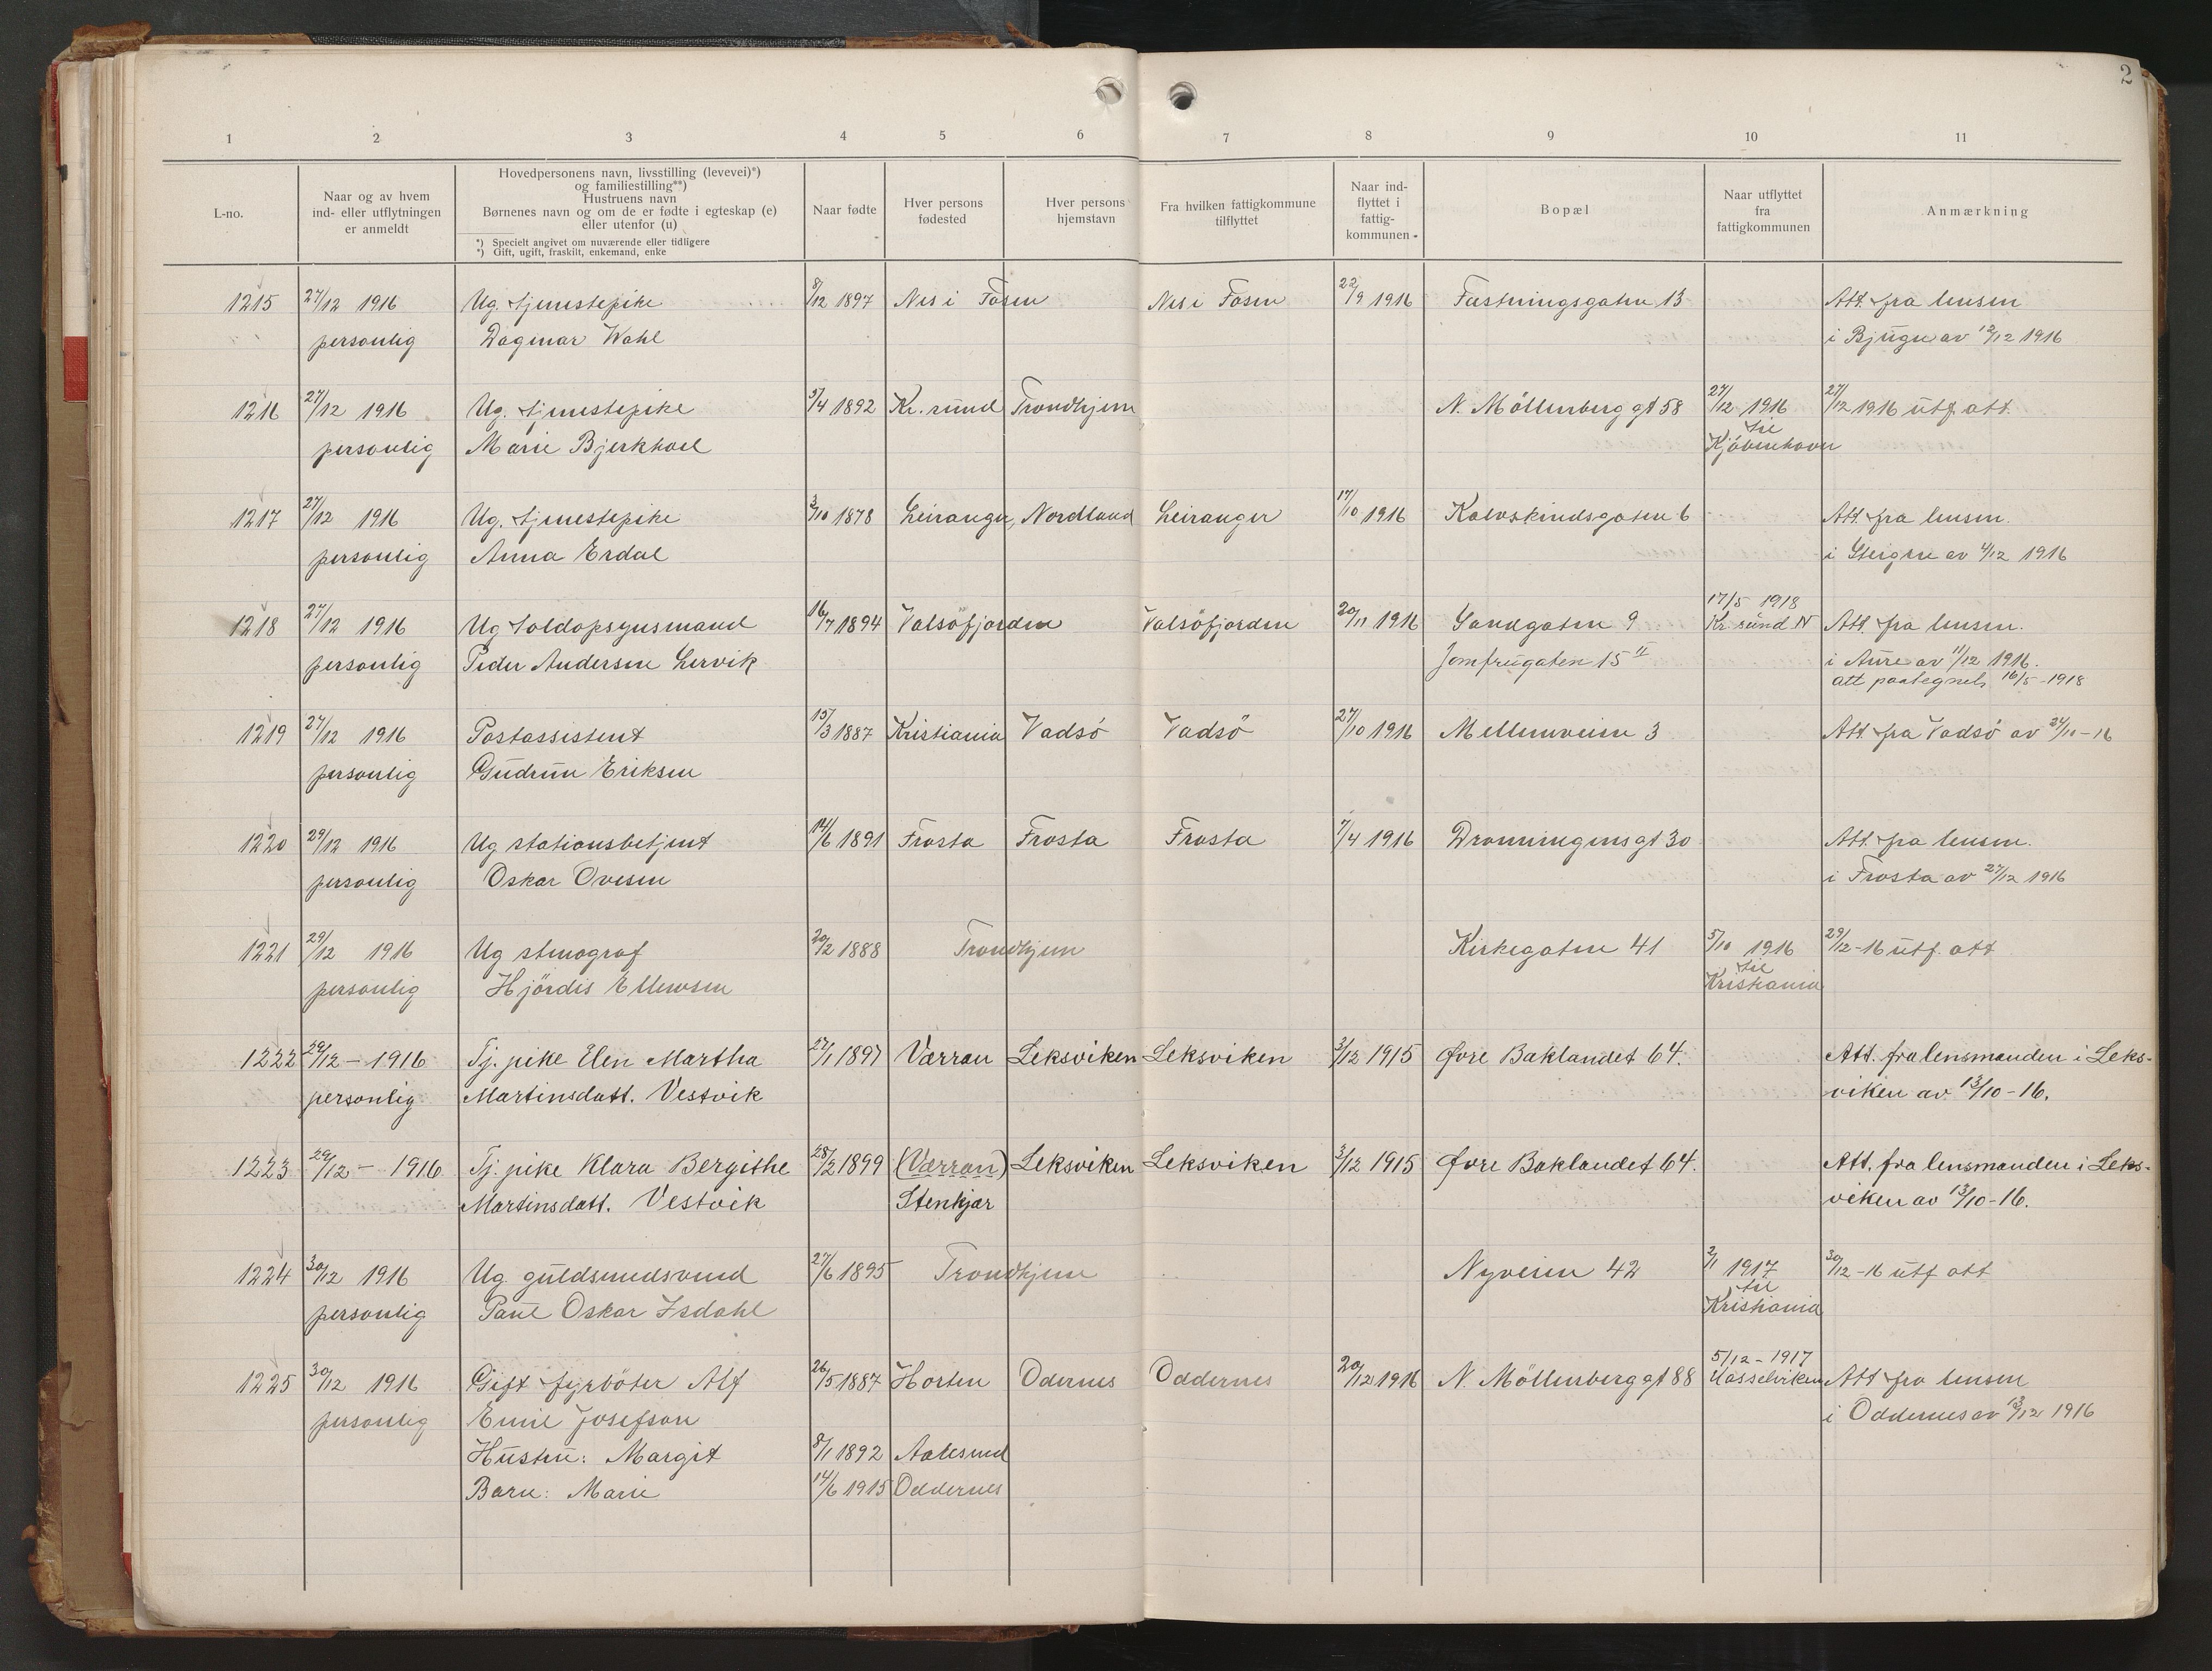 2
1 2 3 4 5 6 7 8 9 10 11
L-no.
Naar og av hvem
ind- eller utflytningen
er anmeldt
Hovedpersonens navn, livsstilling (levevei)*)
og familiestilling**)
Hustruens navn
Børnenes navn og om de er fødte i egteskap (e)
eller utenfor (u)
*) Specielt angivet om nuværende eller tidligere
*) Gift, ugift, fraskilt, enkemand, enke
Naar fødte
Hver persons
fødested
Hver persons
hjemstavn
Fra hvilken fattigkommune
tilflyttet
Naar ind-
flyttet i
fattig-
kommunen
Bopæl
Naar utflyttet
fra
fattigkommunen
Anmærkning
1215 27/12 1916 Ug. tjenestepike 8/12 1897 Nes i Fosen Nes i Fosen 22/9 1916 Fæstningsgaten 13 Att. fra lensm
personlig Dagmar Wahl i Bjugn av 12/12 1916
1216 27/12 1916 Ug. tjenestepike 5/4 1892 Kr.sund Trondhjem N. Möllenberg gt 58 27/12 1916 27/12 1916 utf. att.
til
personlig Marie Bjerkhoel Kjöbenhavn
1217 27/12 1916 Ug. tjenestepike 3/10 1878 Leiranger, Nordland Leiranger 17/10 1916 Kalvskindsgaten 6 Att. fra lensm.
personlig Anna Erdal i Steigen av 4/12 1916
17/5 1918
1218 27/12 1916 Ug toldopsynsmand 16/7 1894 Valsöfjorden Valsöfjorden 20/11 1916 Sandgaten 9 Kr.sund N Att. fra lensm.
personlig Peder Andersen Lervik Jomfrugaten 15 II i Aure av 11/12 1916.
att paategnet 16/5-1918
1219 27/12 1916 Postassistent 15/3 1887 Kristiania Vadsö Vadsö 27/10 1916 Mellemveien 3 Att. fra Vadsö av 24/11-16
personlig Gudrun Eriksen
1220 29/12 1916 Ug stationsbetjent 14/6 1891 Frosta Frosta Frosta 7/4 1916 Dronningens gt 30 Att. fra lensm.
personlig Oskar Ovesen i Frosta av 27/12 1916
1221 29/12 1916 Ug stenograf 20/2 1888 Trondhjem Kirkegaten 41 5/10 1916 29/12-16 utf. att
til
personlig Hjördis Ellewsen Kristiania
1222 29/12 - 1916 Tj. pike Elen Martha 27/1 1897 Værran Leksviken Leksviken 3/12 1915 Øvre Baklandet 64. Att. fra lensmanden i Leks-
personlig Martinsdatt. Vestvik viken av 13/10-16.
1223 29/12 - 1916 Tj. pike Klara Bergithe 28/2 1899 (Værran) Leksviken Leksviken 3/12 1915 Øvre Baklandet 64. Att. fra lensmanden i Leks-
Martinsdatt. Vestvik Stenkjær viken av 13/10-16.
1224 30/12 1916 Ug. guldsmedsvend 27/6 1895 Trondhjem Nyveien 42 2/1 1917 30/12-16 utf att
til
personlig Paul Oskar Isdahl Kristiania
5/12-1917
1225 30/12 1916 Gift fyrböter Alf 26/5 1887 Horten Odernes Oddernes 20/12 1916 N. Möllenberg gt 88 Hasselviken Att fra lensm
personlig Emil Josefson i Oddernes av 13/12 1916
Hustru: Margit 8/1 1892 Aalesund
Barn: Marie 14/6 1915 Oddernes